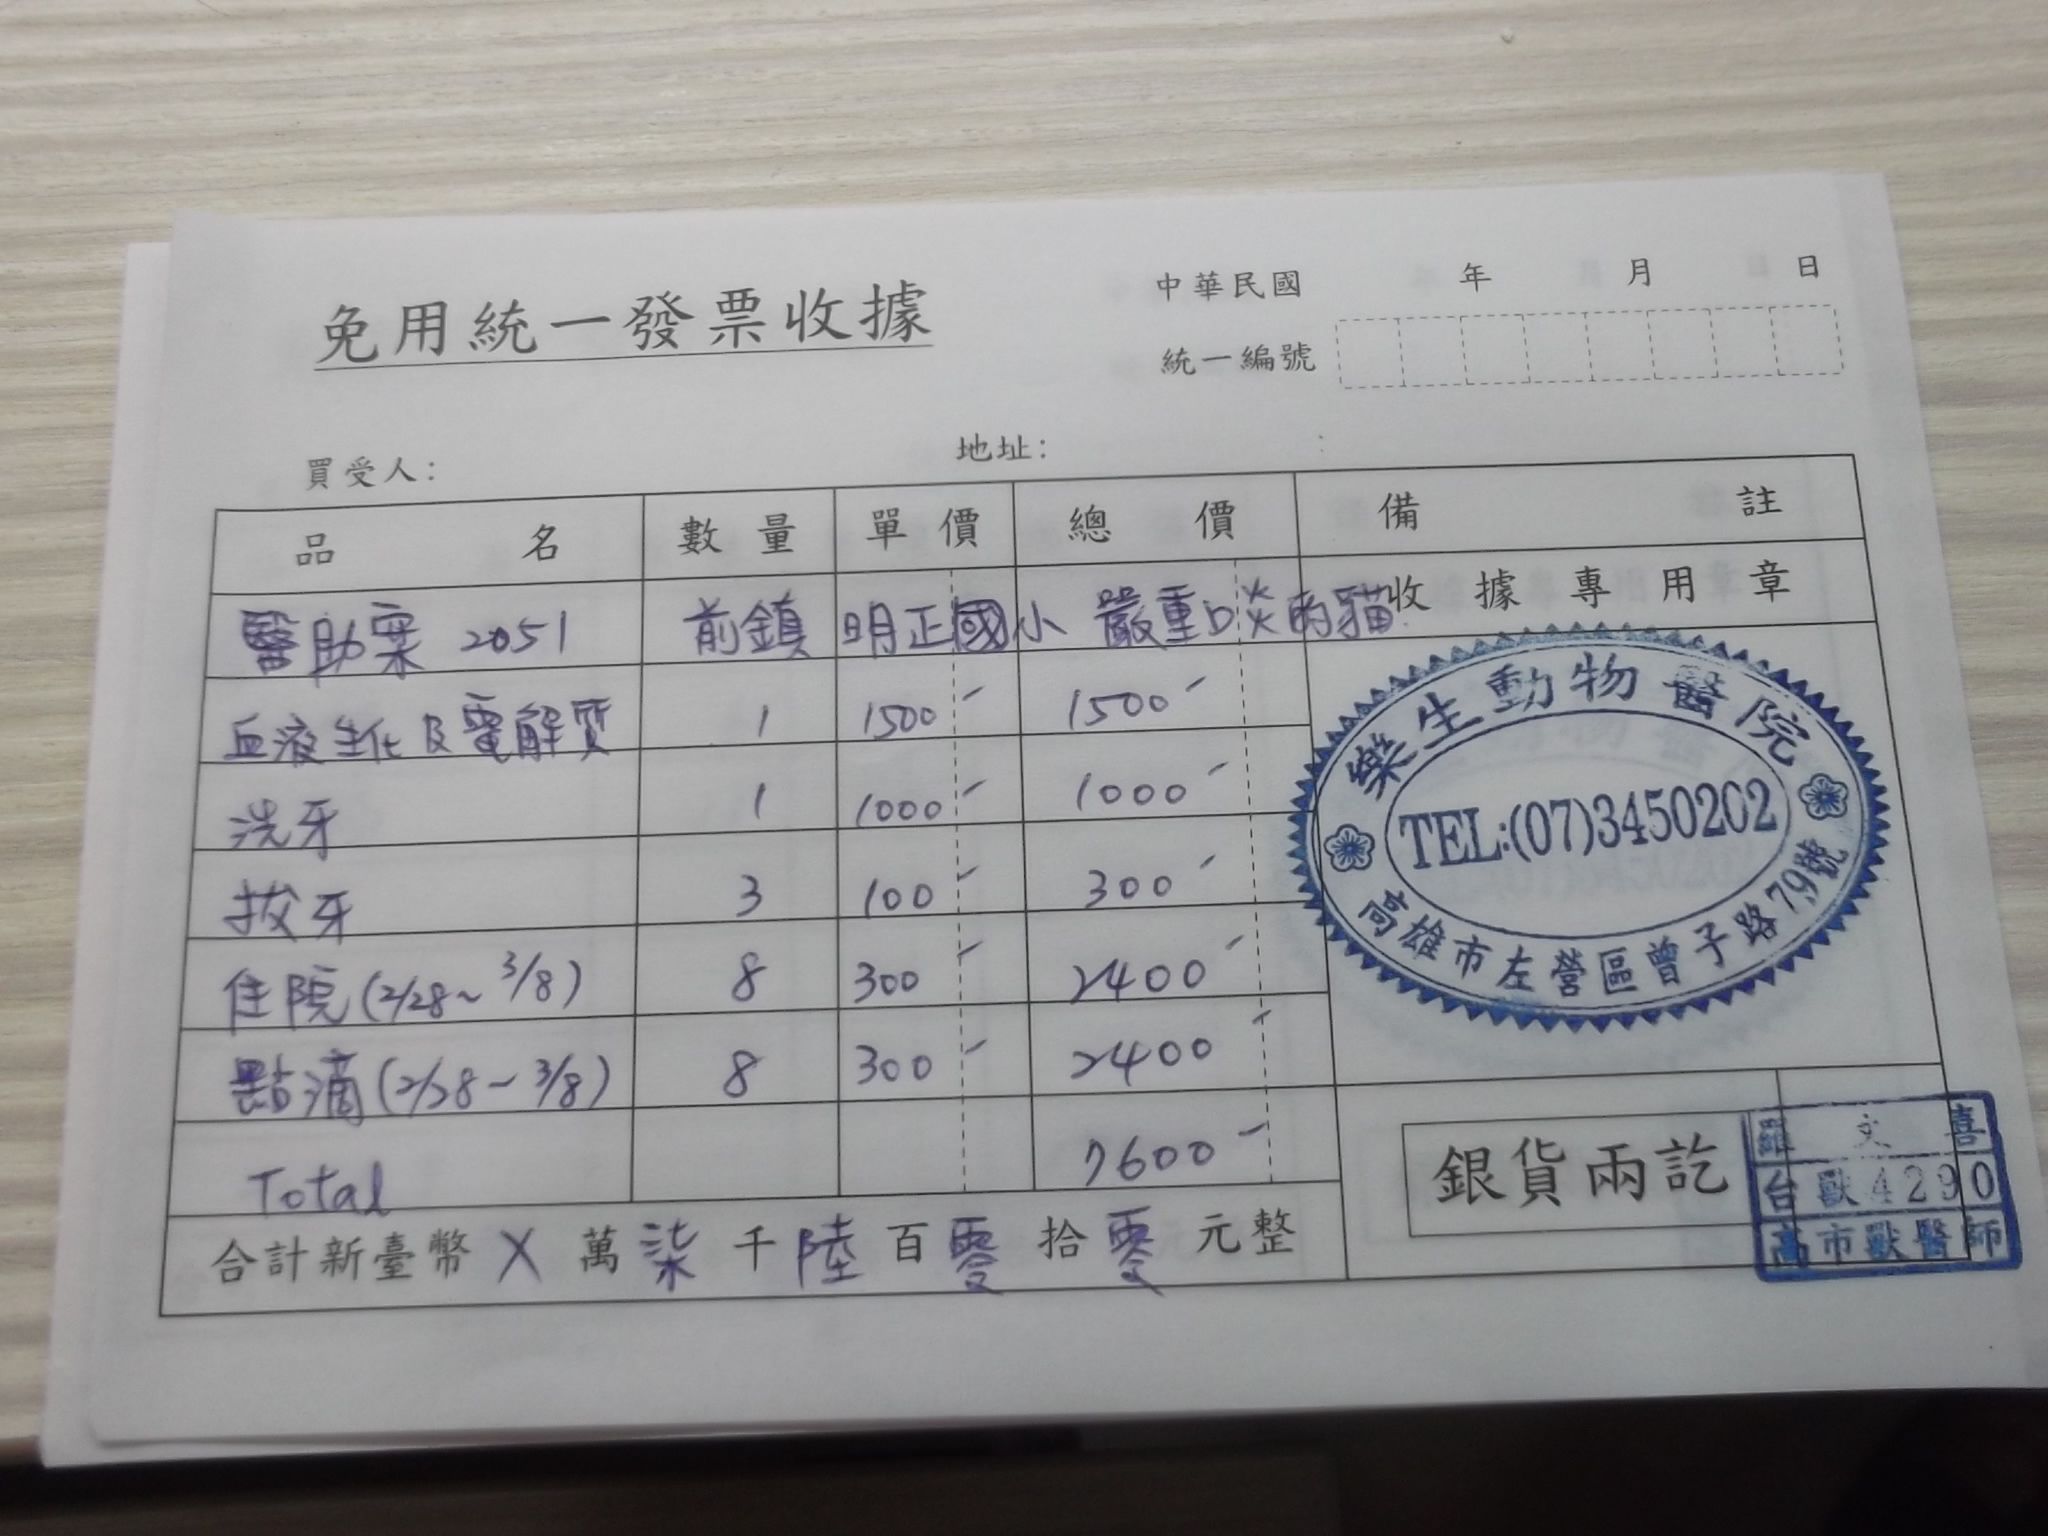 免用統一發票收據
中華民國 年 月 日
統一編號
買受人： 地址：
品名 數量 單價 總價 備註
醫助案 2051 前鎮 明正國小 嚴重口炎的貓 收據專用章
血液生化及電解質 1 1500 1500
洗牙 1 1000 1000
拔牙 3 100 300
住院(2/28~3/8) 8 300 2400
點滴(2/28~3/8) 8 300 2400
Total 7600
合計新臺幣 X 萬 柒 千 陸 百 零 拾 零 元整
樂生動物醫院
TEL:(07)3450202
高雄市左營區曾子路79號
銀貨兩訖
羅文喜
台獸4290
高市獸醫師